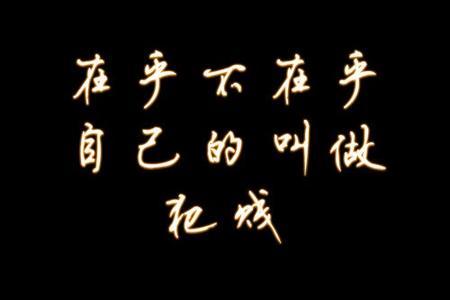 在乎不在乎
自己的叫做
犯贱